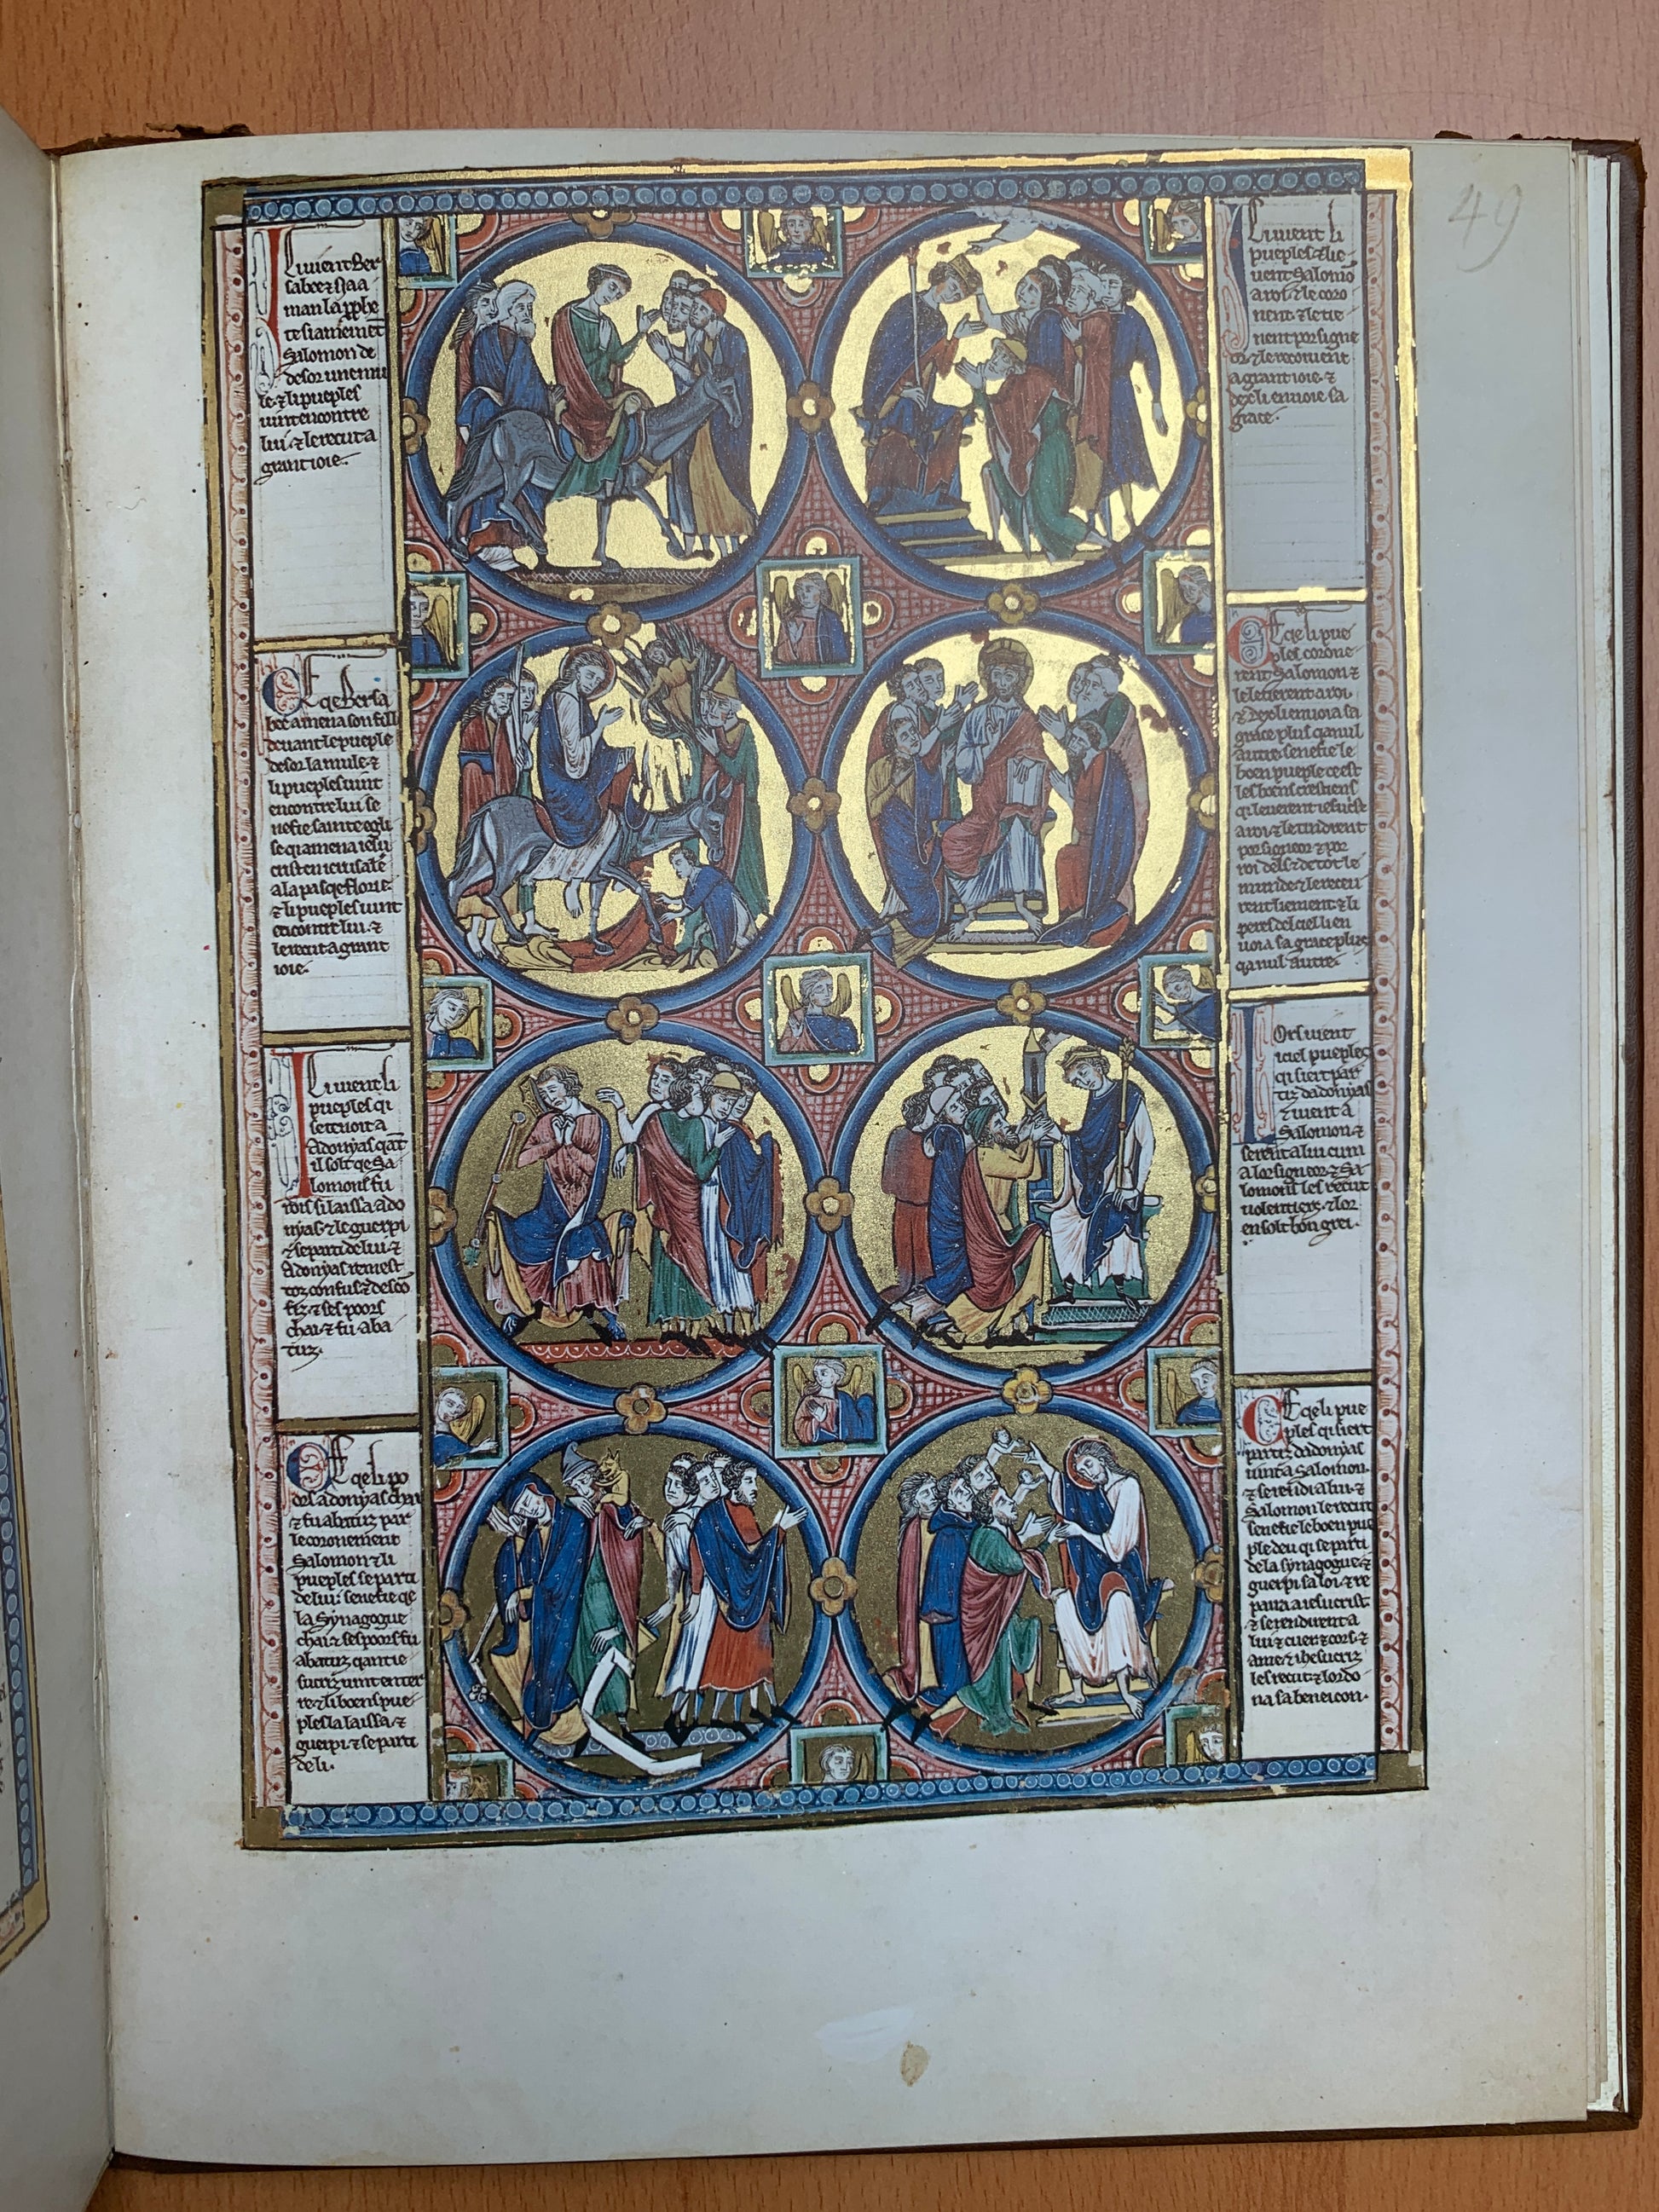 I Ci vient Ber
sabee ⁊ Naa
man la p̄phe
te si amenēt
Salomon de
desor une mu
le ⁊ li pueples
vint encontre
lui ⁊ le recut a
grant ioie.
Ce qe Bersa
bee amena son fill
devant le pueple
desor la mule ⁊
li pueples vint
encontre lui se
nefie sainte egli
se qi amena iesu
crist en ierusalē
a la pasqe florie
⁊ li pueples vint
encontre lui ⁊
le recut a grant
ioie.
Ici vient li
pueples qi
se tenoit a
Adonyas qant
il solt qe Sa
lomons fu
rois si laissa ado
nyas ⁊ le guerpi
⁊ se parti de lui ⁊
Adonyas remest
toz confus ⁊ descō
fiz ⁊ ses poors
chai ⁊ fu aba
tuz.
Ce qe li po
ors adonyas chai
⁊ fu abatuz par
le coronement
Salomon ⁊ li
pueples se parti
de lui senefie qe
la Synagogue
chai ⁊ ses poors fu
abatuz qant ie
sucriz vint en ter
re ⁊ li boens pue
ples la laissa ⁊
guerpi ⁊ se parti
de li.
49
Ici vient li
pueples ⁊ lie
vent Salomō
a roi ⁊ le coro
nent ⁊ le tie
nent por signe
or ⁊ le recoivent
a grant ioie ⁊
dex li envoie sa
grace.
Ce qe li pue
ples corone
rent Salomon ⁊
le leverent a roi
⁊ dex li envoia sa
grace plus qa nul
autre senefie le
boen pueple ce est
les boens crestiens
qi leverent iesucrist
a roi ⁊ le tindrent
por signeor ⁊ por
roi del ciel ⁊ de tot le
munde ⁊ le receu
rent liement ⁊ li
peres del ciel li en
voia sa grace plus
qa nul autre.
I Ors vient
icel pueples
qi s'iert par
tiz d'adonyas
⁊ vient a
Salomon ⁊
se rent a lui cum
a lor signeor ⁊ Sa
lomons les recut
volentiers ⁊ lor
en solt bon grei.
Ce qe li pue
ples qi s'iert
partiz d'adonyas
vint a Salomon
⁊ se rendi a lui ⁊
Salomon le recut
senefie le boen pue
ple deu qi se parti
de la synagogue ⁊
guerpi sa loi ⁊ re
paira a iesucrist
⁊ se rendirent a
lui ⁊ cuer ⁊ cors ⁊
ame ⁊ ihesucriz
les recut ⁊ lor do
na sa beneicon.